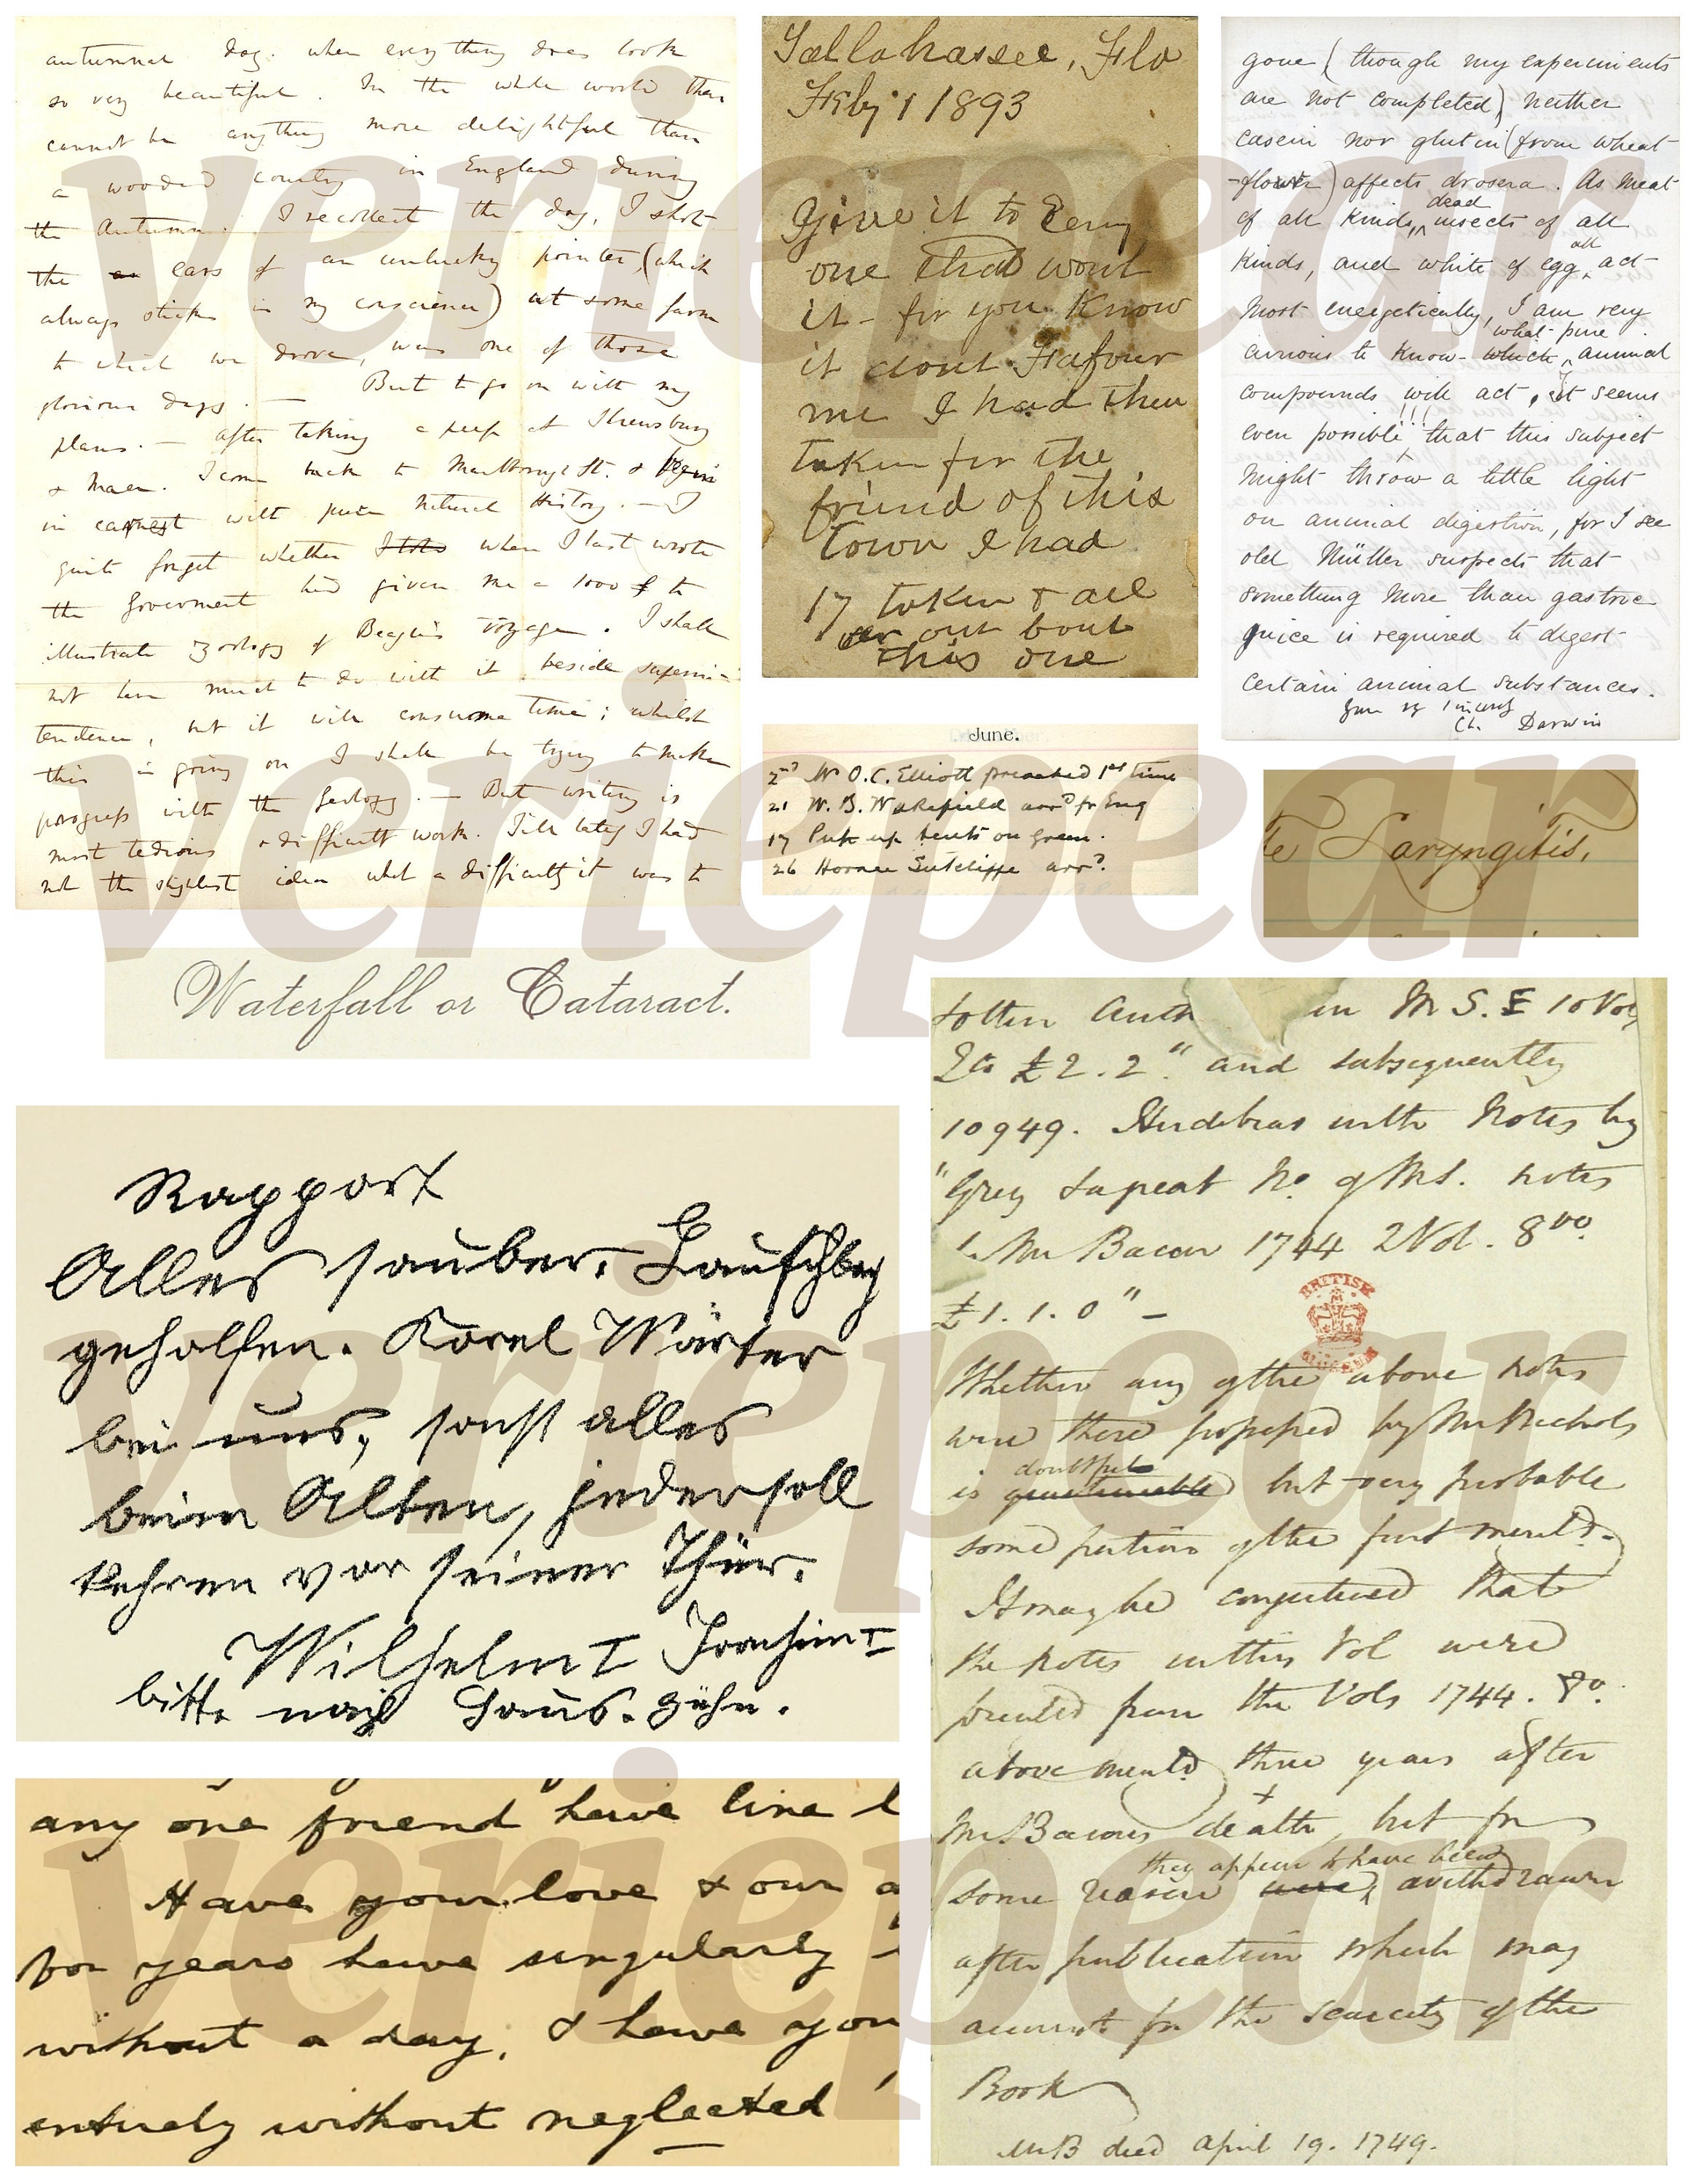 autumnal day. when every thing does look
so very beautiful. In the whole world there
cannot be anything more delightful than
a wooded country in England during
the Autumn. I recollect the day, I shot
the ears of an unlucky pointer, (which
always sticks in my conscience) at some farm
to which we drove, was one of those
glorious days. — But to go on with my
plans. — after taking a peep at Shrewsbury
& Maer. I come back to Marlborough St. & begin
in earnest with pure Natural History. — I
quite forget whether when I last wrote
the Government had given me a 1000 £ to
illustrate Zoology of Beagle's voyage. I shall
not have much to do with it beside superin-
tendence, but it will consume time; whilst
this is going on I shall be trying to make
progress with the Geology. — But writing is
most tedious & difficult work. Till lately I had
not the slightest idea what a difficulty it was to
Tallahassee, Flo
Feby 1 1893
Give it to Eeny
one that wont
it - for you Know
it dont Flafour
me I had them
taken for the
friend of this
Town I had
17 taken & all
out bout
this one
gone (though my experiments
are not completed) neither
casein nor glutin (from wheat
-flour) affects drosera. As meat
of all kinds, dead insects of all
kinds, and white of egg all act
most energetically, I am very
curious to know which what pure animal
compounds will act, it seems
even possible !!! that this subject
might throw a little light
on animal digestion, for I see
old Müller suspects that
something more than gastric
juice is required to digest
certain animal substances.
Ch. Darwin
June.
2nd Mr O.C. Elliott preached 1st time
21 W. B. Wakefield arrd fr Eng
17 Put up tents on green.
26 Horace Sutcliffe arrd.
te Laryngitis.
Waterfall or Cataract.
Rapport
Alles sauber. Laufschbey
geholfen. Karel Wärter
bei uns, sonst alles
beim Alten, jeder soll
kehren vor seiner Thür.
Wilhelm I Joachim I
bitte nach Haus. gehn.
any one friend have line l
Have your love & our a
for years have singularly
without a day, & have you
entirely without neglected
in M S. £ 10 Vol
£2. 2." and subsequently
10949. Hudibras with Notes by
"Grey a great No. of MS. notes
by Mr Bacon 1744 2 Vol. 8vo.
£1. 1. 0" —
BRITISH
MUSEUM
Whether any of the above notes
were there possessed by Mr Nichols
is questionable doubtful but very probable
some portion of the first mentd.
It may be conjectured that
the Notes in this Vol were
printed from the Vols 1744. 8o.
above mentd three years after
Mr Bacons death, but for
some reason were they appear to have been withdrawn
after publication which may
account for the scarcity of the
Book
Mr B died April 19. 1749.
veriepear
veriepear
veriepear
veriepear